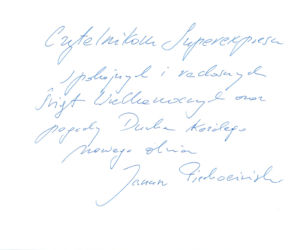 Czytelnikom Superexpressu
spokojnych i radosnych
Świąt Wielkanocnych oraz
pogody Ducha każdego
nowego dnia
Janusz Piechociński